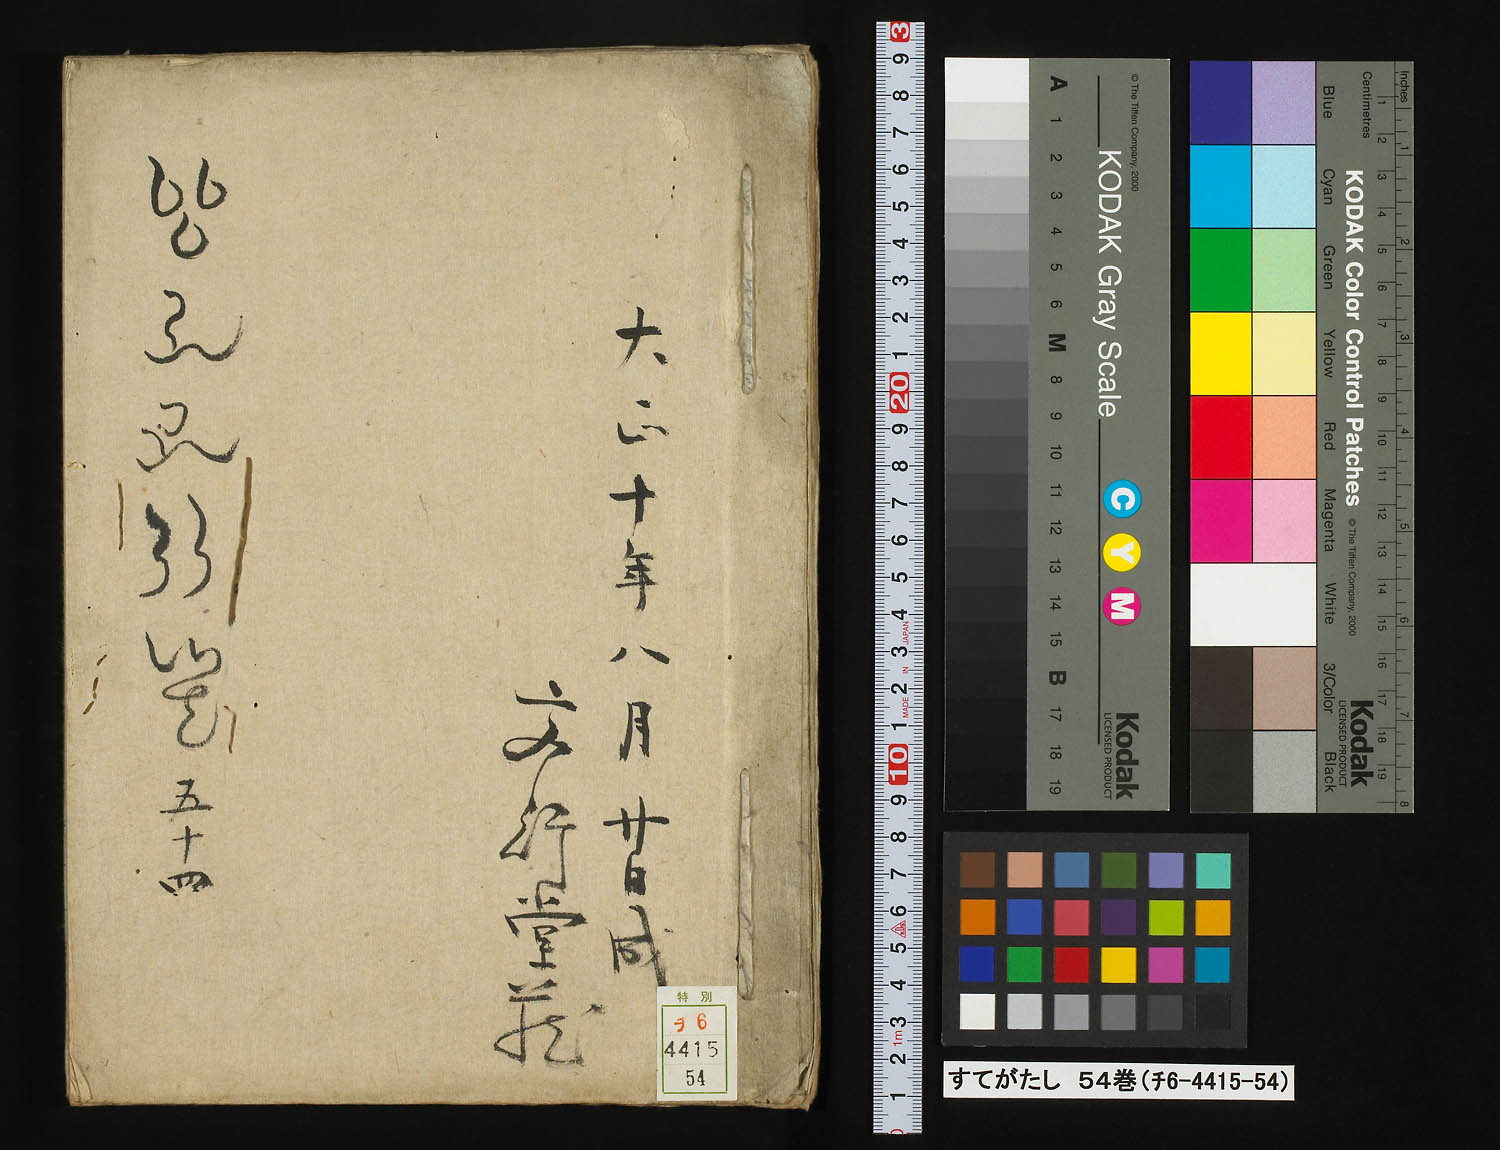 大正十年八月廿日成
文行堂蔵
五十四
特別
チ6
4415
54
すてがたし 54巻(チ6-4415-54)
KODAK Gray Scale
© The Tiffen Company, 2000
A 1 2 3 4 5 6 M 8 9 10 11 12 13 14 15 B 17 18 19
C Y M
Kodak
LICENSED PRODUCT
KODAK Color Control Patches
© The Tiffen Company, 2000
Inches
Centimetres
Blue
Cyan
Green
Yellow
Red
Magenta
White
3/Color
Black
Kodak
LICENSED PRODUCT
MADE IN JAPAN
1m